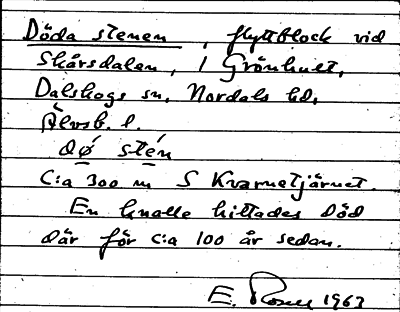 Döda stenen, flyttblock vid
Skårsdalen, i Grönhult,
Dalskogs sn, Nordals hd,
Älvsb. l.
dø̄́ stḗn
C:a 300 m S Kvarnetjärnet.
En knalle hittades död
där för c:a 100 år sedan.
E. 1963